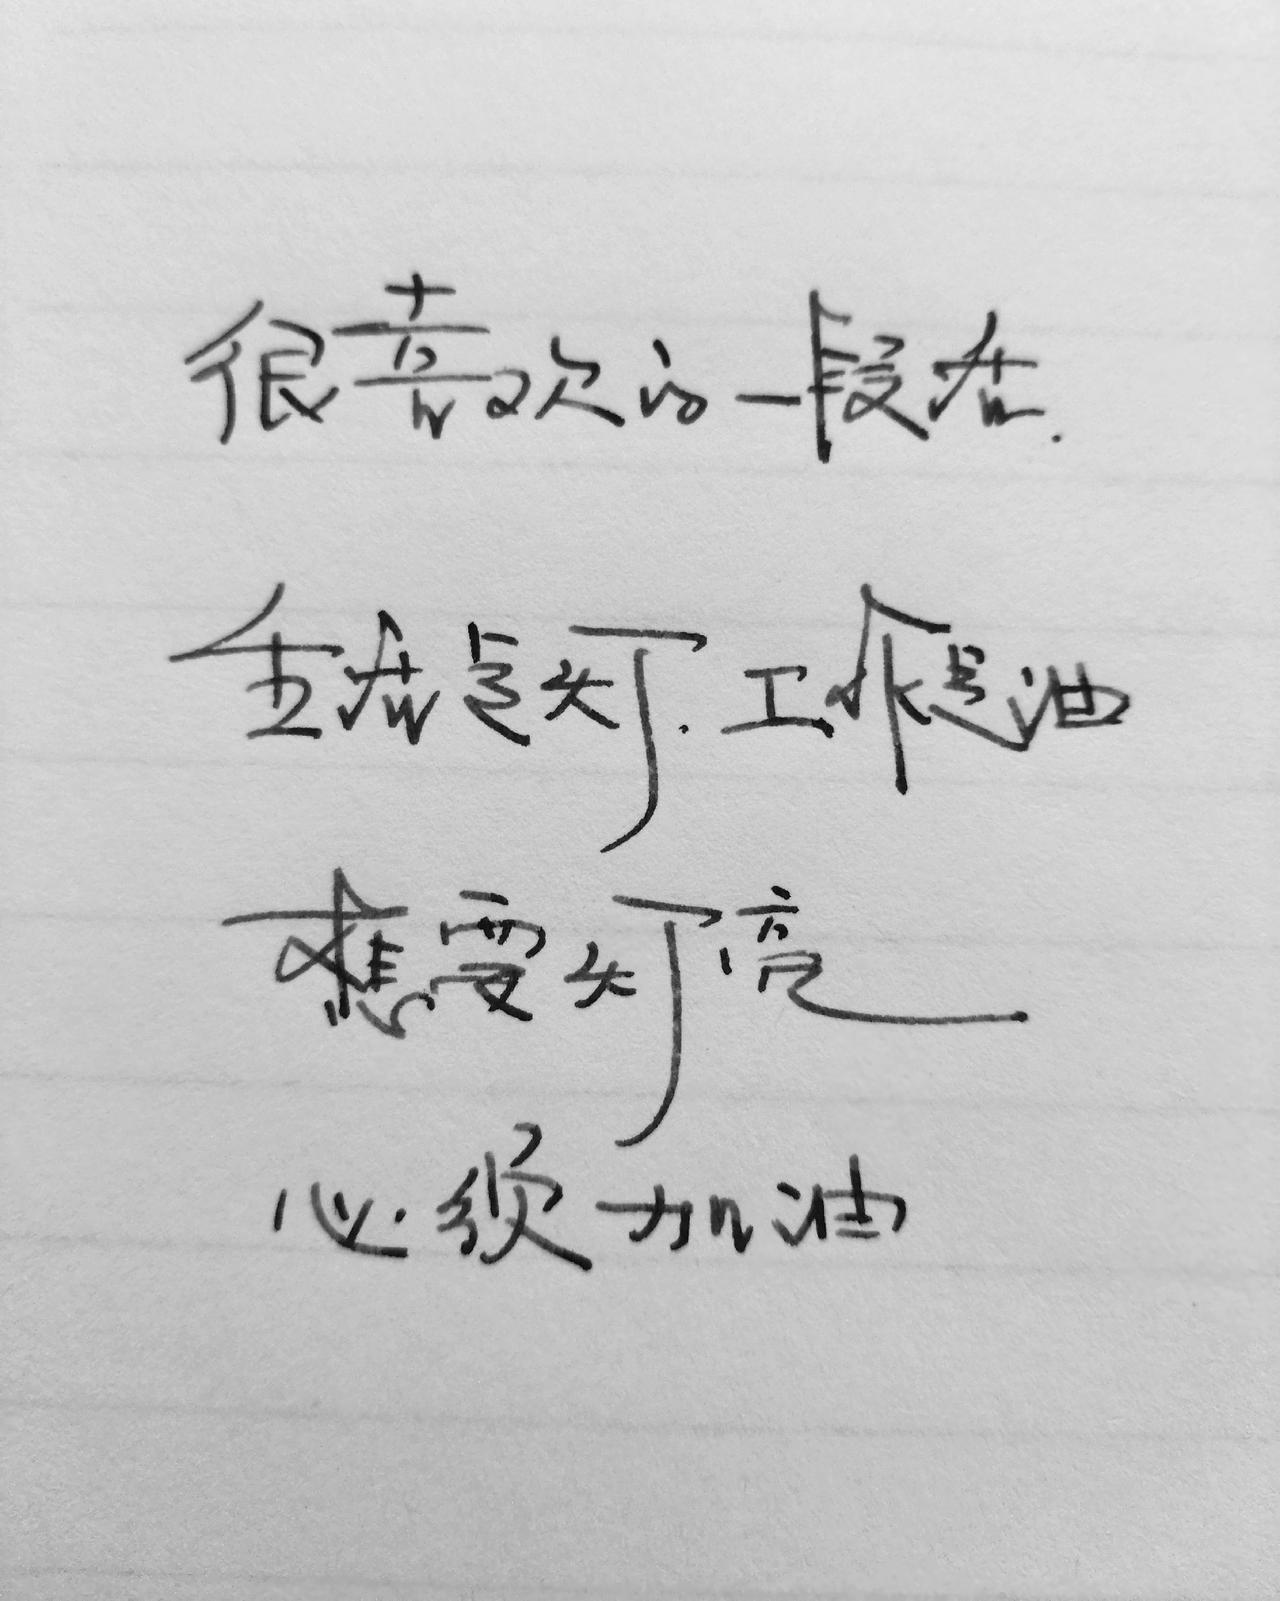 很喜欢的一段话.
生活是灯.工作是油
想要灯亮
必须加油